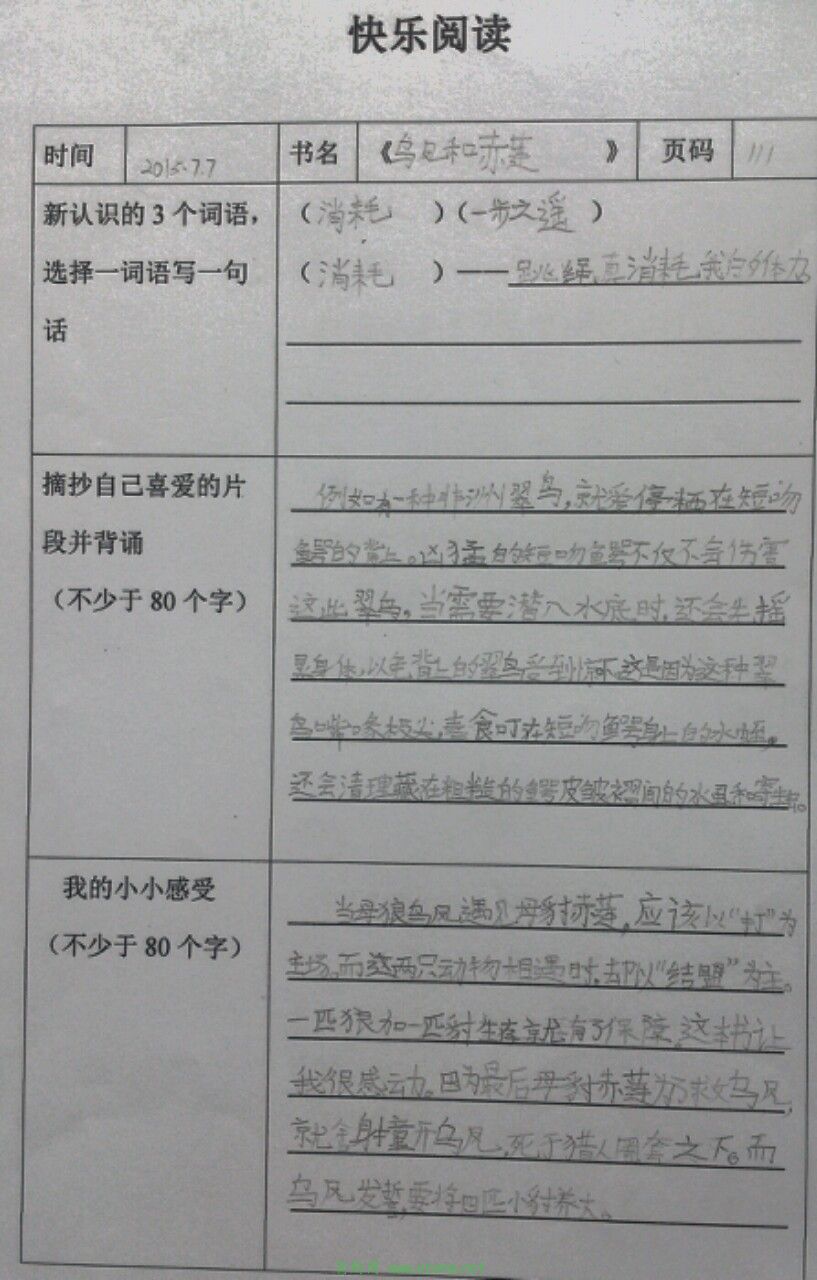 快乐阅读
时间 2015.7.7 书名 《乌凤和赤莲 》 页码 111
新认识的3个词语，
选择一词语写一句
话
（消耗 ）（一步之遥 ）
（消耗 ）——跳绳,真消耗,我的体力。
摘抄自己喜爱的片
段并背诵
（不少于80个字）
例如有一种非洲翠鸟,就爱停栖在短吻
鳄的背上。凶猛的短吻鳄不仅不会伤害
这些翠鸟。当需要潜入水底时,还会先摇
晃身体,以免背上的翠鸟受到惊吓,这是因为这种翠
鸟嘴喙极尖,喜食叮在短吻鳄身上的水蛭,
还会清理藏在粗糙的鳄皮皱褶间的水虱和寄生虫。
我的小小感受
（不少于80个字）
当母狼乌凤遇见母豺赤莲,应该以“打”为
主场,而这两只动物相遇时,却以“结盟”为主。
一匹狼加一匹豺生存就有了保障。这本书让
我很感动。因为最后母豺赤莲为了救乌凤,
就舍身撞开乌凤,死于猎人圈套之下。而
乌凤发誓,要将四匹小豺养大。